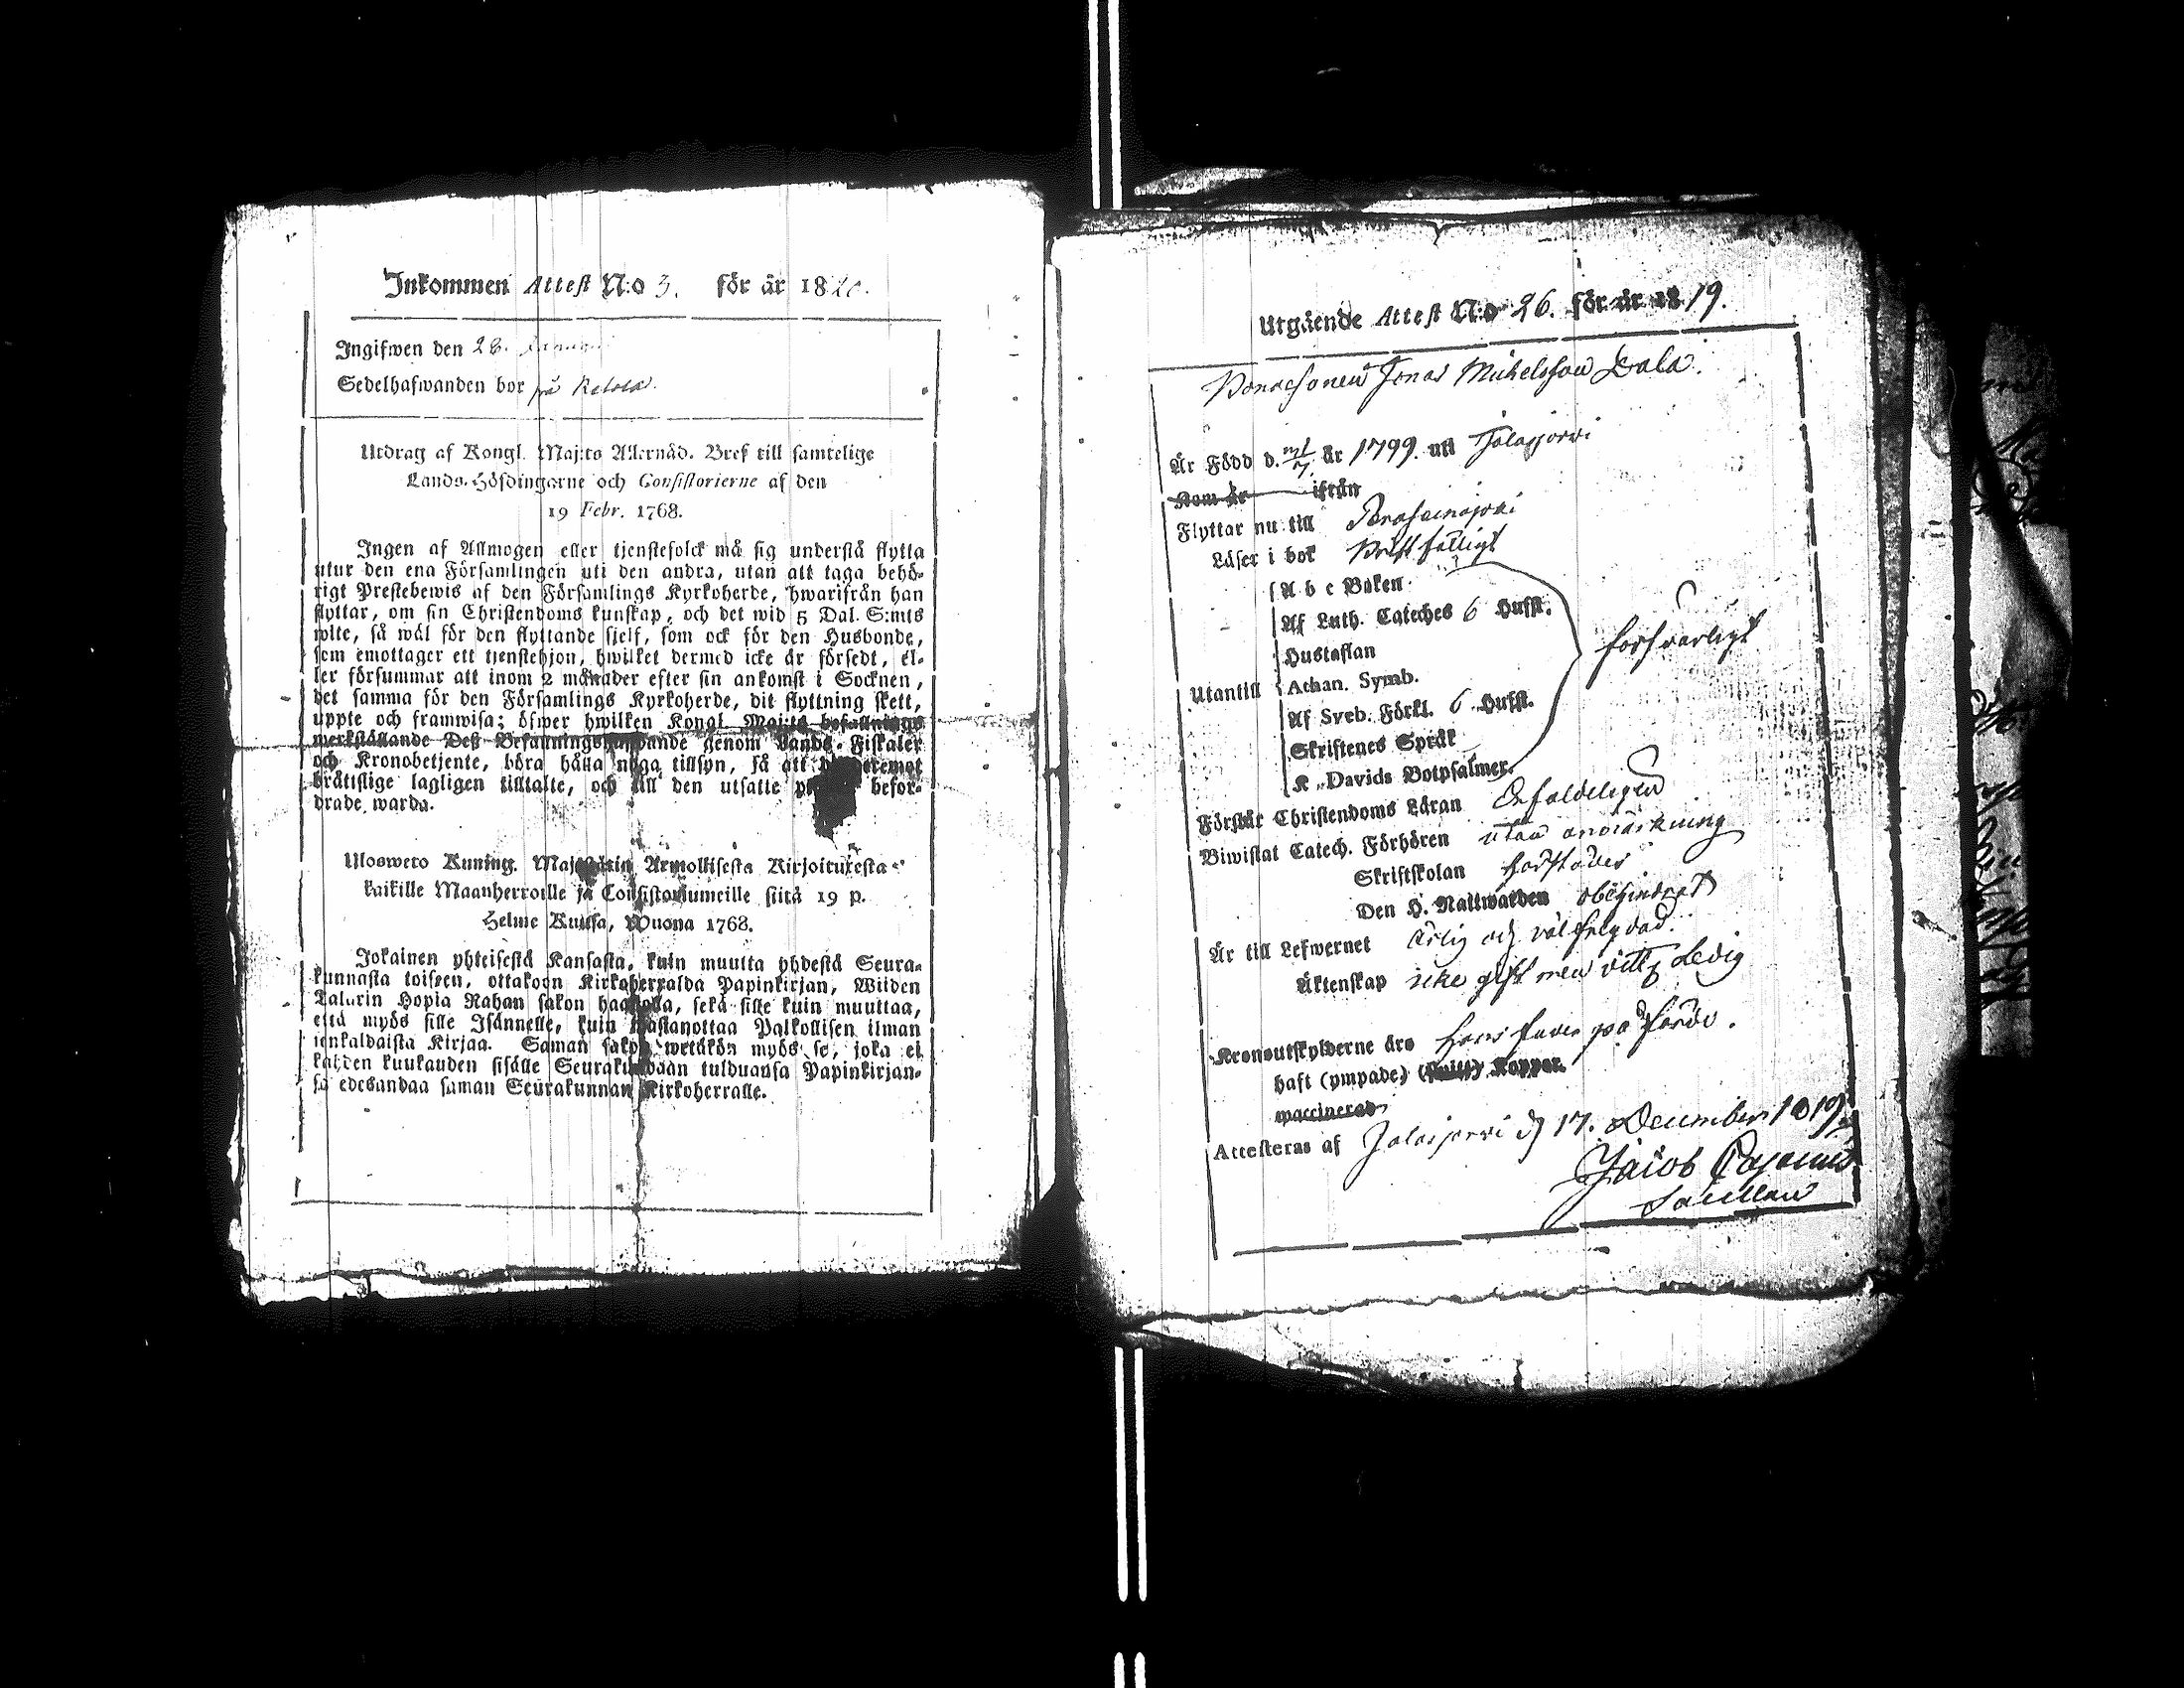 Inkommen Attest N:o 3. för år 1820.
Ingifwen den 28.
Sedelhafwanden bor på
Utdrag af Kongl. Maj:ts Allernåd. Bref till samtelige
Lands-Höfdingarne och Consistorierne af den
19 Febr. 1768.
Ingen af Allmogen eller tjenstefolck må sig understå flytta
utur den ena Församlingen uti den andra, utan att taga behö-
rigt Prestebewis af den Församlings Kyrkoherde, hwarifrån han
flyttar, om sin Christendoms kunskap, och det wid 5 Dal. S:mts
wite, så wäl för den flyttande sjelf, som ock för den Husbonde,
som emottager ett tjenstehjon, hwilket dermed icke är försedt, el-
ler försummar att inom 2 månader efter sin ankomst i Socknen,
det samma för den Församlings Kyrkoherde, dit flyttning skett,
uppte och framwisa; öfwer hwilken Kongl. Maj:ts befallnings
werkställande Deß Befallningshafwande genom Lands-Fiskaler
och Kronobetjente, böra hålla noga tillsyn, så att
bråttslige lagligen tilltalte, och till den utsatte befor-
drade warda.
Ulosweto Kuning. Majestätin Armollisesta Kirjoituxesta
kaikille Maanherroille ja Consistoriumeille siitä 19 p.
Helme Kuussa, Wuona 1768.
Jokainen yhteisestä Kansasta, kuin muutta yhdestä Seura-
kunnasta toiseen, ottakoon Kirkoherralda Papinkirjan, Wiiden
Talarin Hopia Rahan sakon haastolla, sekä sille kuin muuttaa,
että myös sille Isännelle, kuin wastanottaa Palkollisen ilman
senkaldaista Kirjaa. Saman sakon wetäkön myös se, joka ei
kahden kuukauden sisälle Seurakundaan tulduansa Papinkirjan-
sa edesandaa saman Seurakunnan Kirkoherralle.
Utgående Attest N:o 26. för år 1819.
Bonaesonen Jonas Michelsson Dala.
Är Född d. år 1799. uti Jalasjervi
Kom år ifrån
Flyttar nu till
Läser i bok
A b c Boken
Af Luth. Cateches 6 Hufst.
Hustaflan
Utantill Athan. Symb. försvarligt
Af Sveb. Förkl. 6 Hufst.
Skriftenes Språk
K. Davids Botpsalmer.
Förstår Christendoms Läran Enfaldeligen
Biwistat Catech. Förhören utan anmärkning
Skriftskolan
Den H. Nattwarden obehindrat
Är till Lefwernet Ärlig och välfrejdad.
Äktenskap icke gift men ledig
Kronoutskylderne äro
haft (ympade) Koppor.
vaccinerad
Attesteras af Jalasjervi d 17. December 1819.
Jacob